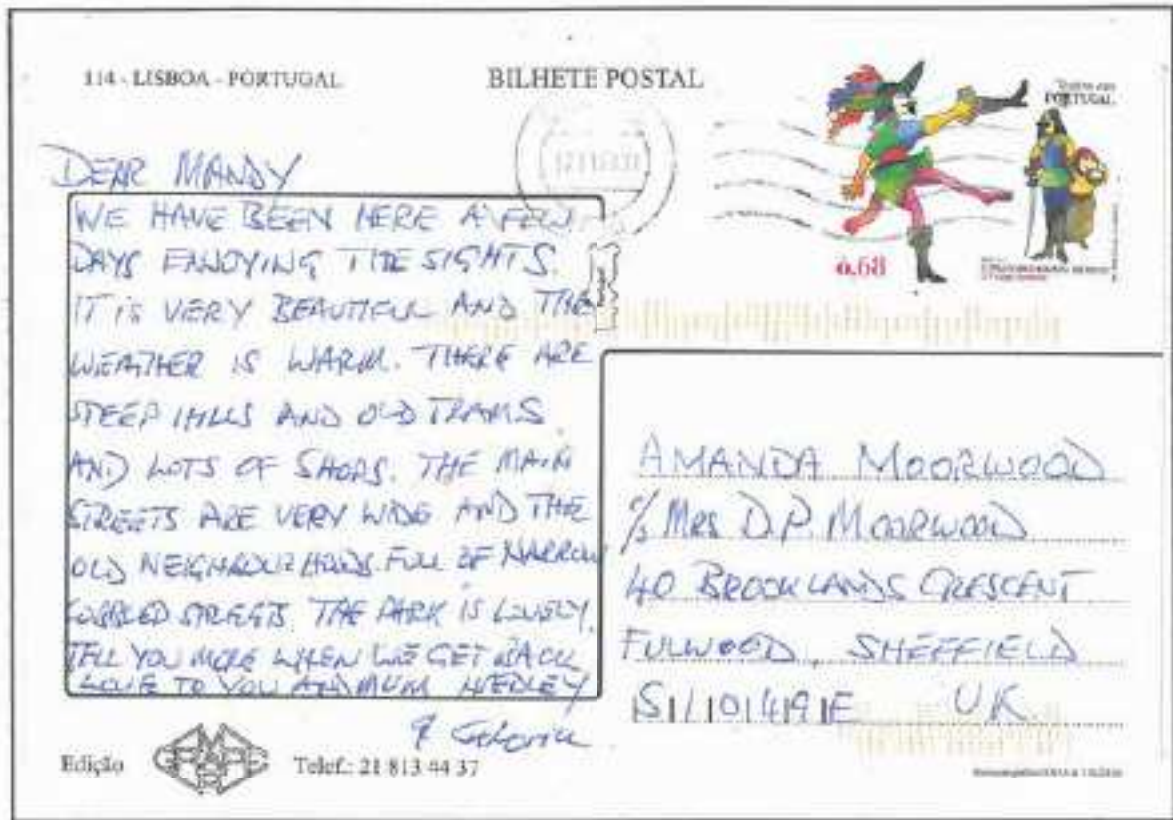 114 - LISBOA - PORTUGAL
BILHETE POSTAL
PORTUGAL
0.68
DEAR MANDY
WE HAVE BEEN HERE A FEW
DAYS ENJOYING THE SIGHTS.
IT IS VERY BEAUTIFUL AND THE
WEATHER IS WARM. THERE ARE
STEEP HILLS AND OLD TRAMS
AND LOTS OF SHOPS. THE MAIN
STREETS ARE VERY WIDE AND THE
OLD NEIGHBOURHOODS FULL OF NARROW
COBBLED STREETS. THE PARK IS LOVELY.
TELL YOU MORE WHEN WE GET BACK
LOVE TO YOU AND MUM HEDLEY
AMANDA MOORWOOD
c/o MRS D.P. MOORWOOD
40 BROOKLANDS CRESCENT
FULWOOD, SHEFFIELD
UK
Edição
Telef.: 21 813 44 37